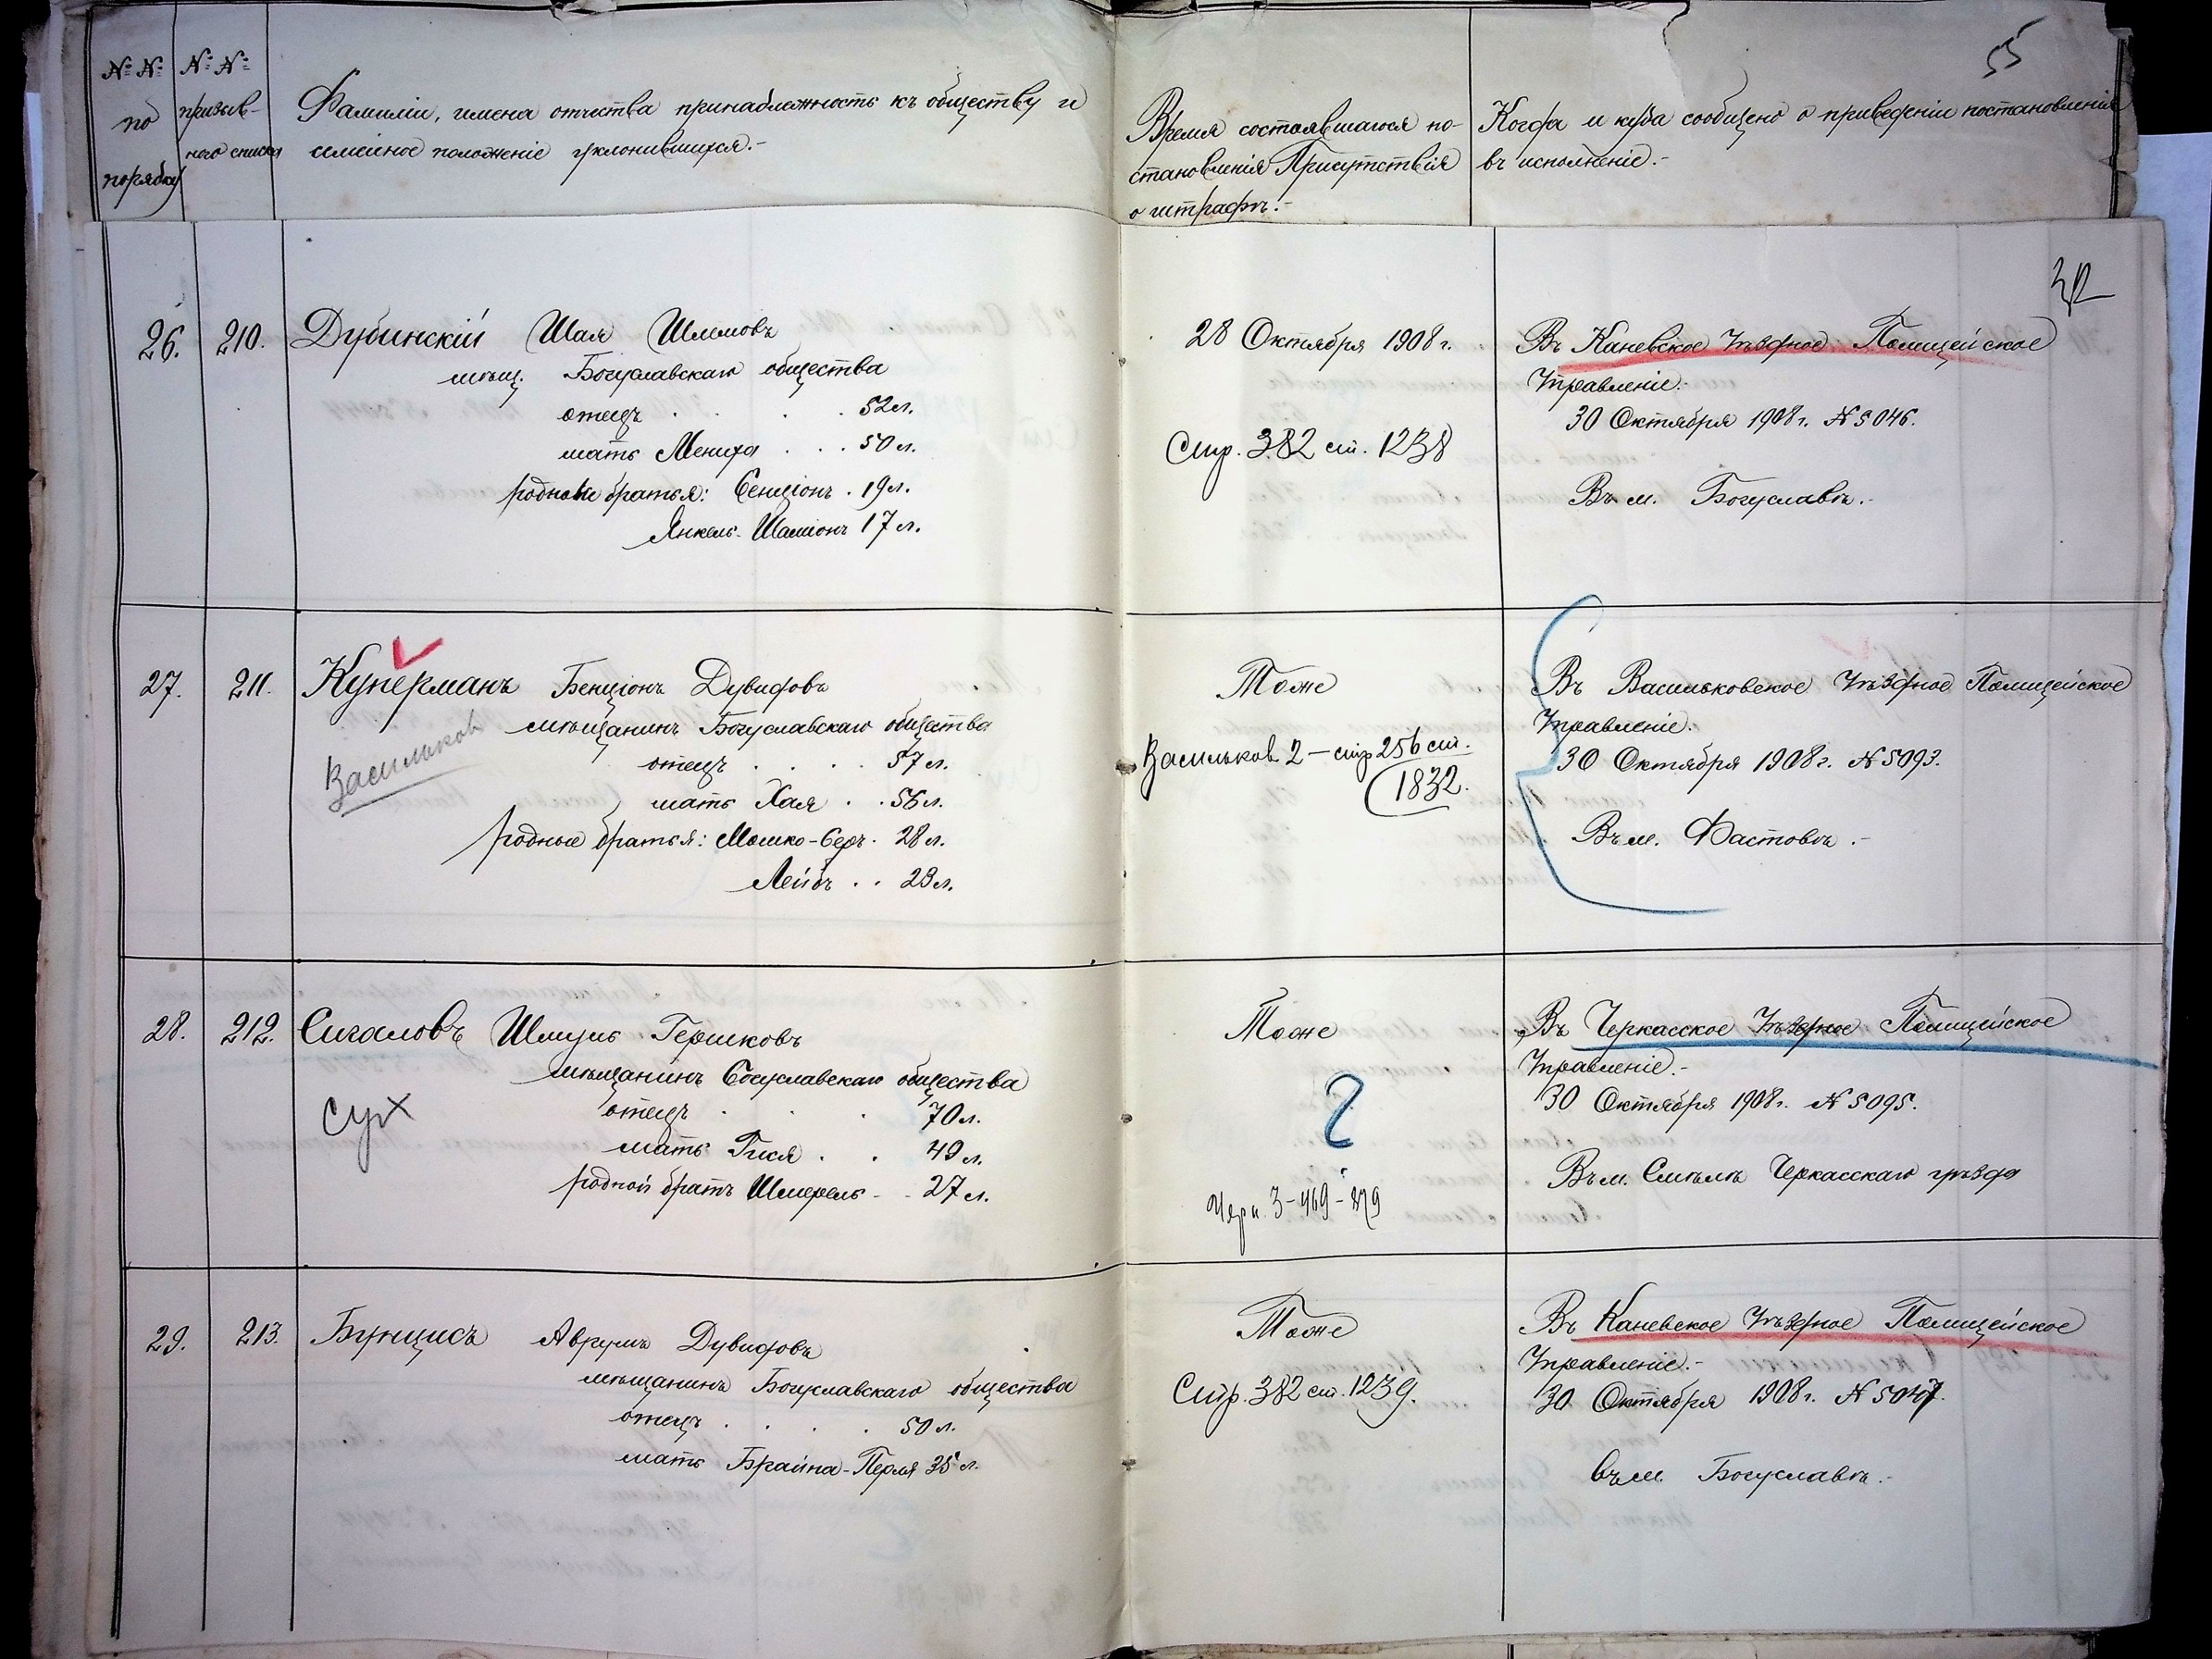 № №
по
порядку
№ №
призыв-
ного списка
Фамиліи, имена отчества принадлежность къ обществу и
семейное положеніе уклонившихся.-
Время состоявшагося по-
становленія Присутствія
о штрафѣ.-
Когда и куда сообщено о приведеніи постановленія
въ исполненіе.-
55
26. 210. Дубинскій Шая Шлемовъ
мѣщ. Богуславскаго общества
отецъ . . . 52 л.
мать Мениха . . . 50 л.
родные братья: Бенціонъ . 19 л.
Янкель-Шаліонъ 17 л.
28 Октября 1908 г.
Стр. 382 ст. 1238
Въ Каневское Уѣздное Полицейское
Управленіе.-
30 Октября 1908 г. № 5046.
Въ м. Богуславѣ.-
27. 211. Куперманъ Бенціонъ Дувидовъ
мѣщанинъ Богуславскаго общества
Васильков
отецъ . . . . 57 л.
мать Хая . . 56 л.
родные братья: Мошко-Беръ . 28 л.
Лейбъ . . 23 л.
Тоже
Васильков 2 - стр 256 ст.
1832.
Въ Васильковское Уѣздное Полицейское
Управленіе.
30 Октября 1908 г. № 5093.
Въ м. Фастовѣ.-
28. 212. Сигаловъ Шмуль Гершковъ
мѣщанинъ Богуславскаго общества
отецъ . . . 70 л.
мать Гися . . 49 л.
родной братъ Шмерель - . 27 л.
Тоже
2
Черк. 3-469-879
Въ Черкасское Уѣздное Полицейское
Управленіе.-
30 Октября 1908 г. № 5095.
Въ м. Смѣлѣ Черкасскаго уѣзда
29. 213. Бунцисъ Аврумъ Дувидовъ
мѣщанинъ Богуславскаго общества
отецъ . . . . 50 л.
мать Брайна-Перля 35 л.
Тоже
Стр. 382 ст. 1239.
Въ Каневское Уѣздное Полицейское
Управленіе.-
30 Октября 1908 г. № 5047.
Въ м. Богуславѣ.-